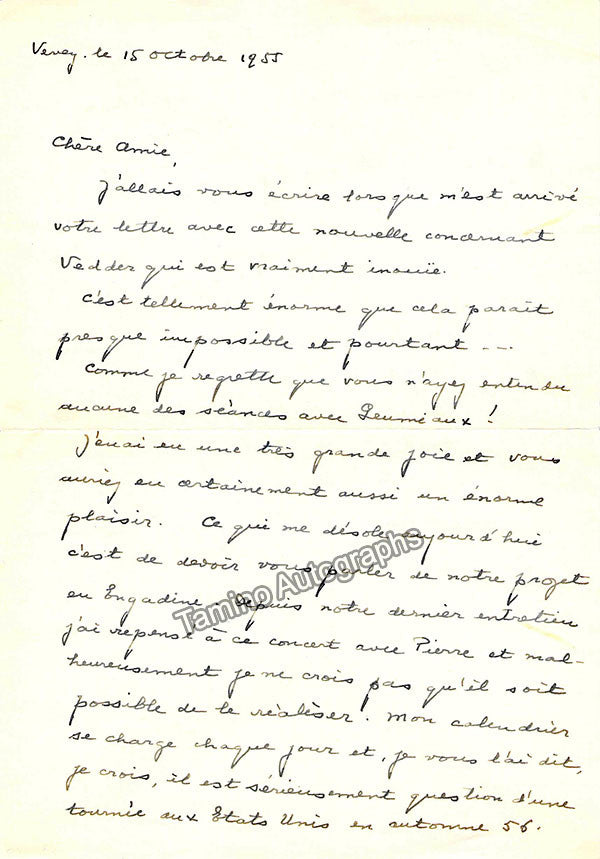 Vevey. le 15 octobre 1955
Chère Amie,
J'allais vous écrire lorsque m'est arrivé
votre lettre avec cette nouvelle concernant
Vedder qui est vraiment inouïe.
C'est tellement énorme que cela paraît
presque impossible et pourtant ---
Comme je regrette que vous n'ayez entendu
aucune des séances avec Grumiaux !
J'en ai eu une très grande joie et vous
auriez eu certainement aussi un énorme
plaisir. Ce qui me désole aujourd'hui
c'est de devoir vous parler de notre projet
en Engadine. Depuis notre dernier entretien
j'ai repensé à ce concert avec Pierre et mal-
heureusement je ne crois pas qu'il soit
possible de le réaliser. Mon calendrier
se charge chaque jour et, je vous l'ai dit,
je crois, il est sérieusement question d'une
tournée aux Etats Unis en automne 56.
Tamino Autographs